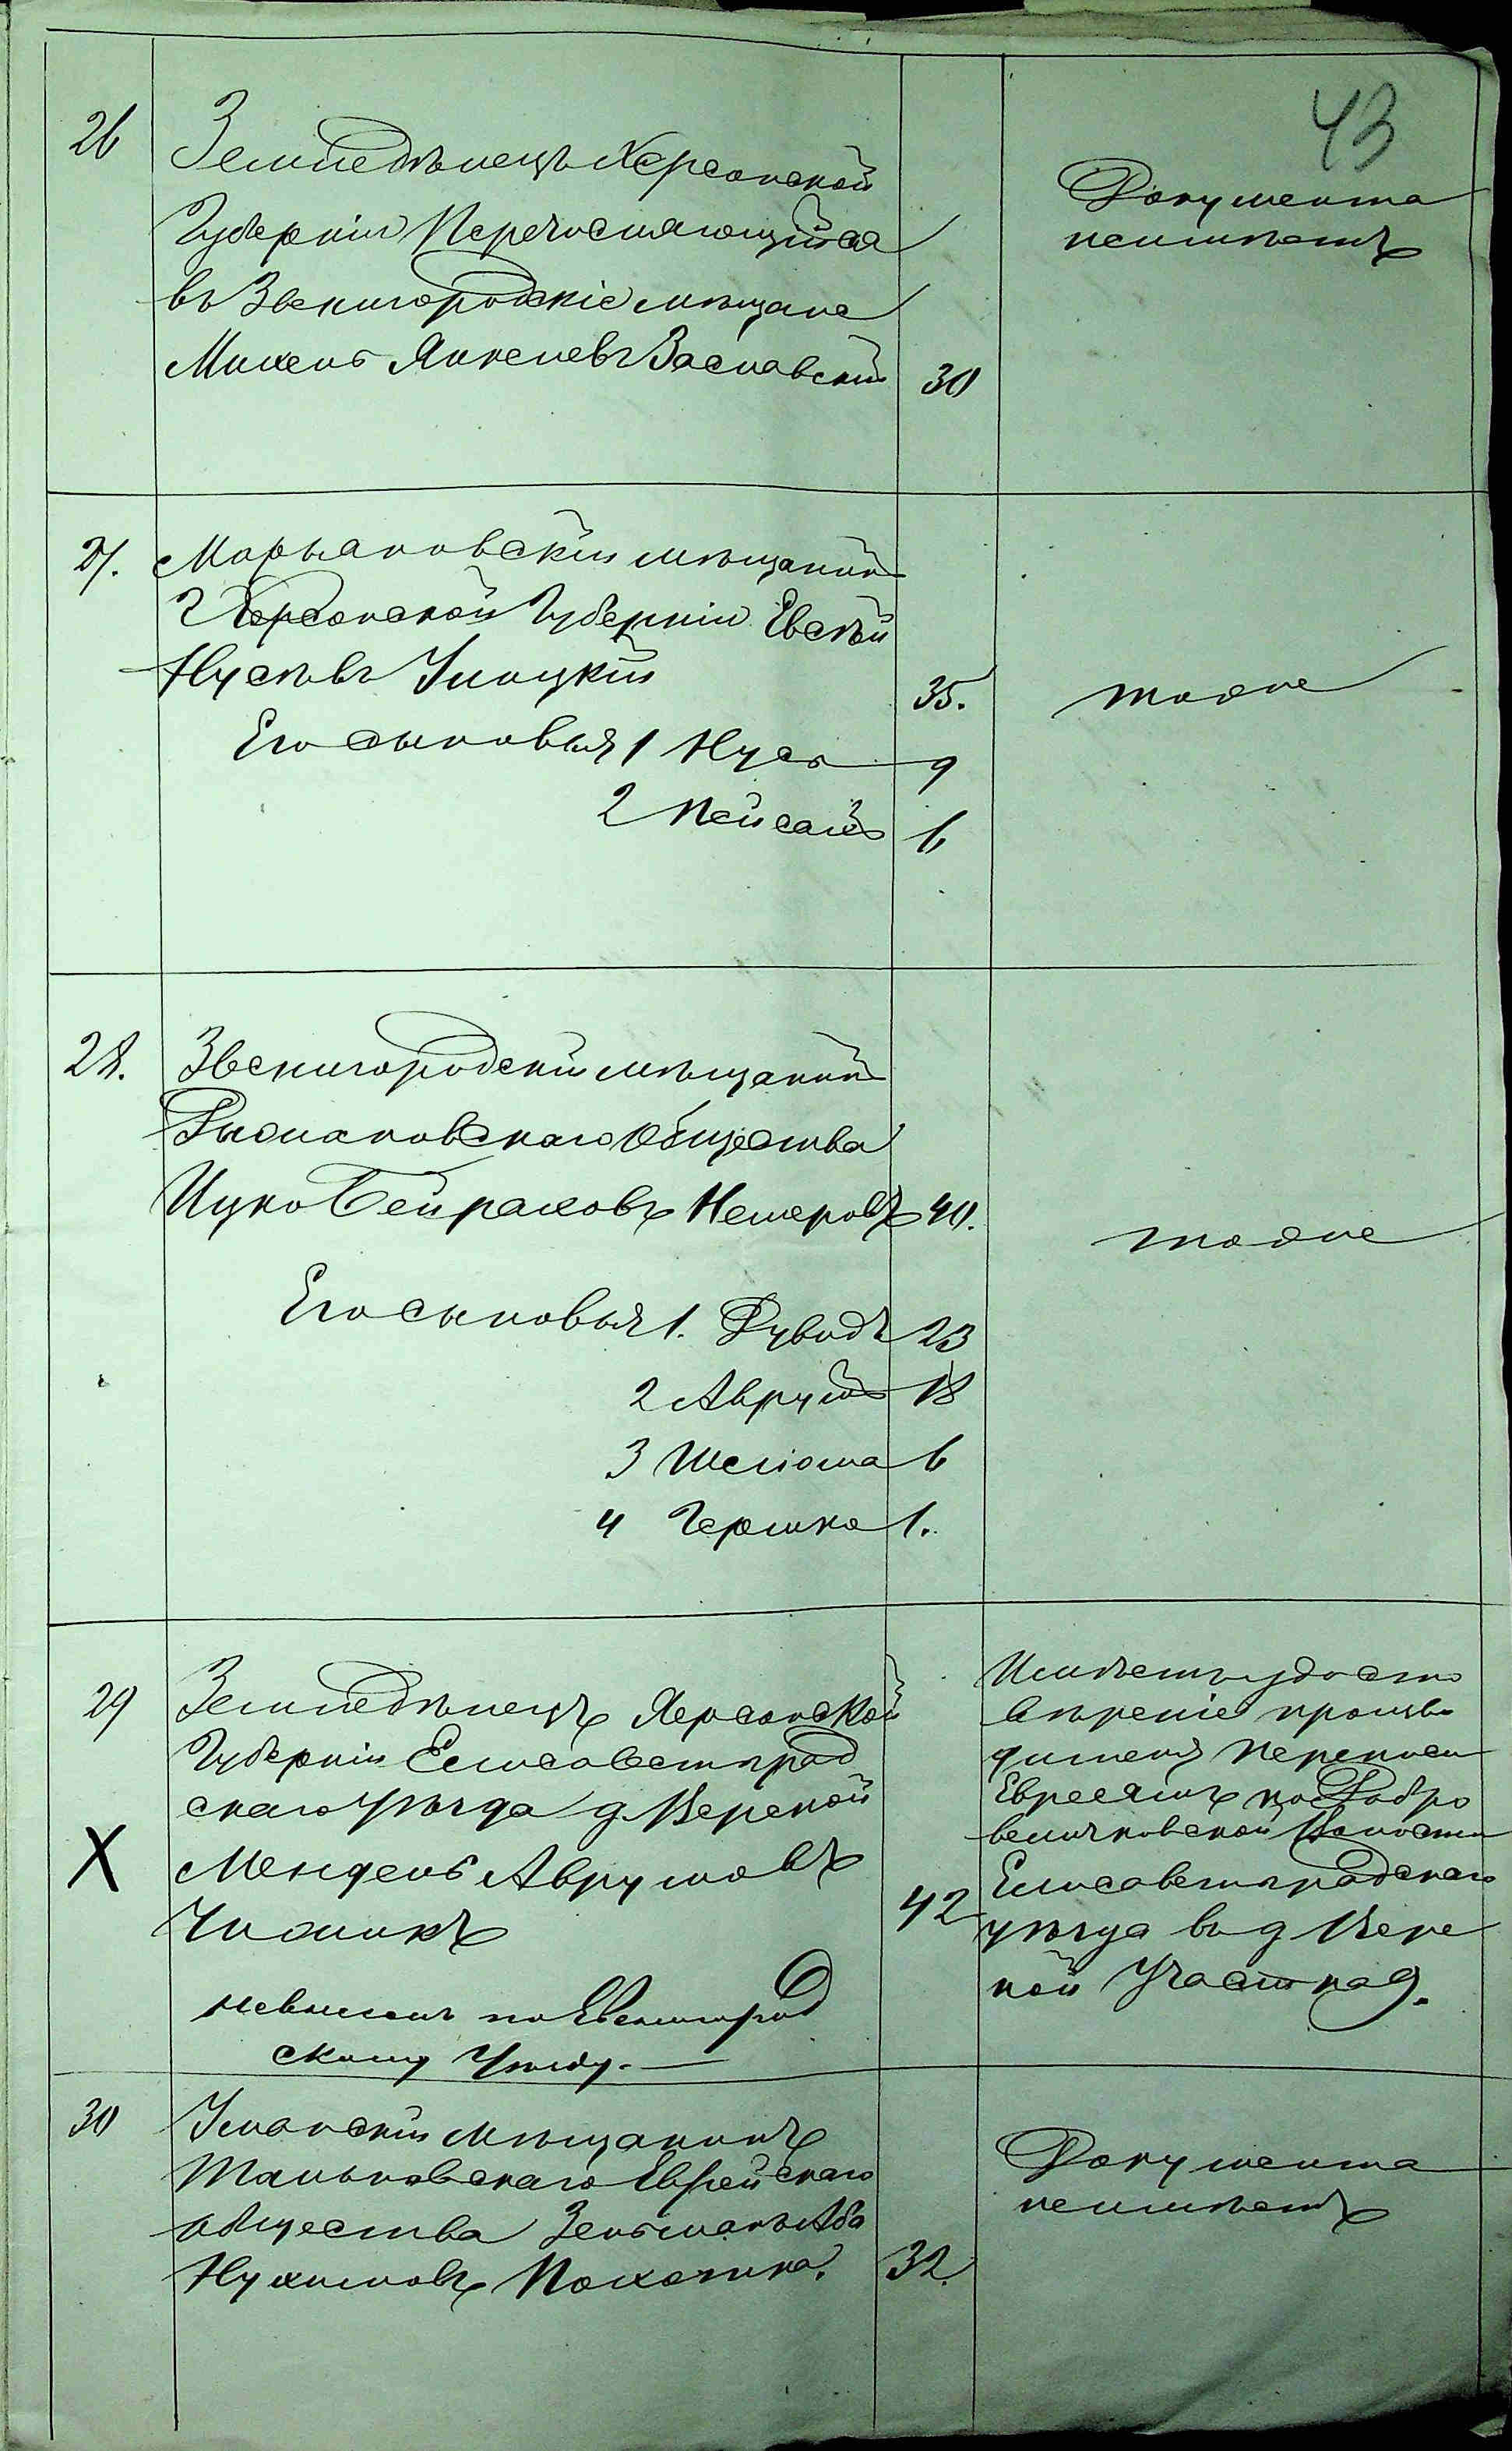 43
26 Земледѣлецъ Херсонской
Губерніи Перечисляющійся
въ Звенигородскіе мѣщане
Михель Янкелевъ Заславскій 30
Документа
неимѣетъ
27. Марьяновскій мѣщанинъ
Херсонской Губерніи Евсѣй
Нусевъ Улицкій 35. тоже
Его сыновья 1 Нусъ 9
2 Пейсахъ 6
28. Звенигородскій мѣщанинъ
Рыжановскаго общества
Ицко Бейраховъ Немеровъ 40. тоже
Его сыновья 1. Дувидъ 23
2 Аврумъ 18
3 Шеліома 6
4 Гершко 1.
29 Земледѣлецъ Херсонской
Губерніи Елисаветград
скаго уѣзда д. Верской
X Мендель Аврумовъ 42
Чижикъ
невписанъ по Звенигород
скому Уѣзду.
Имѣетъ удосто
вѣреніе произво
дителя переписи
Евреямъ по Добро
величковской Волости
Елисаветградскаго
уѣзда въ д Вере
кой Участка 9.
30 Уманскій мѣщанинъ
Тальновскаго Еврейскаго
общества Зельманъ Аба
Нухимовъ 32.
Документа
неимѣетъ